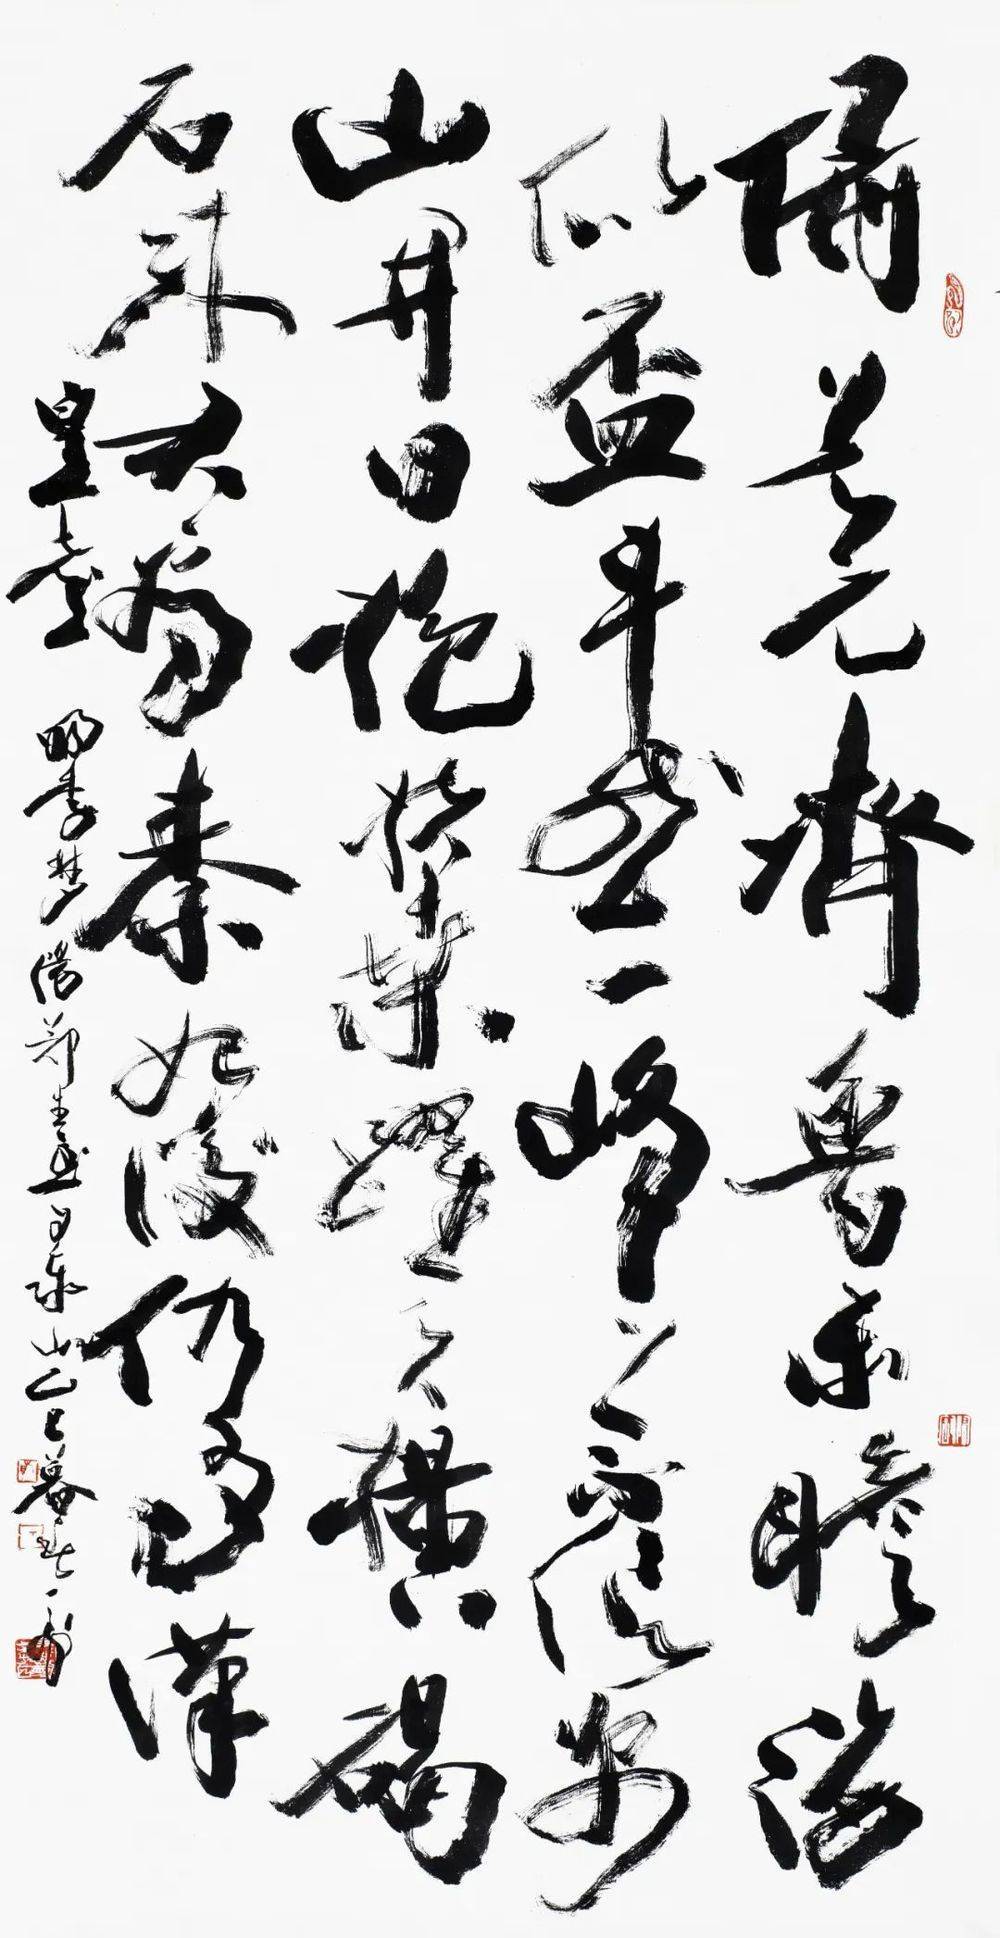 俯首无齐鲁东瞻海
似杯斗然一峰上不信万
山开日抱扶桑跃天横碣
石来君看秦始后仍有汉
皇台 明李梦阳郑生至自泰山乙巳暮春